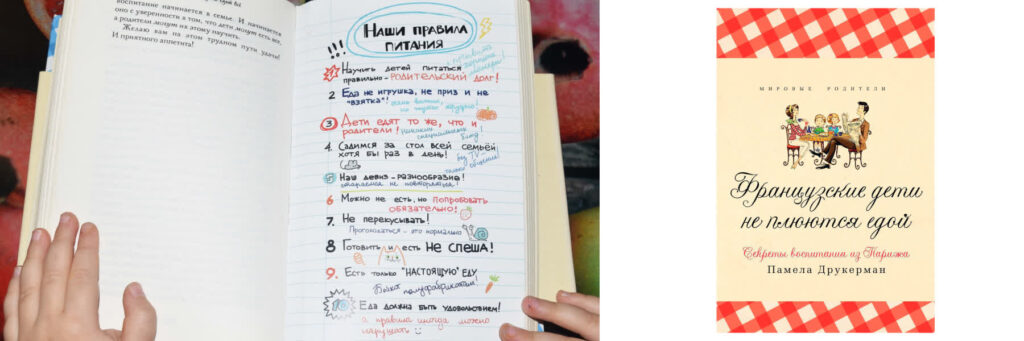 воспитание начинается в семье. И начинается
оно с уверенности в том, что дети могут есть все,
а родители могут их этому научить.
Желаю вам на этом трудном пути удачи!
И приятного аппетита!
Наши правила
питания
!!!
1 Научить детей питаться
правильно – родительский долг!
прививать
хорошие
манеры!
2 Еда не игрушка, не приз и не
"взятка"!
3 Дети едят то же, что и
родители!
никаких
специальных
блюд!
4. Садимся за стол всей семьёй
хотя бы раз в день!
без TV–
только общение!
5 Наш девиз – разнообразие!
стараемся не повторяться!
6 Можно не есть, но попробовать
обязательно!
7. Не перекусывать!
Проголодаться – это нормально
8 Готовить и есть не спеша!
9. Есть только "настоящую" еду
Бойкот полуфабрикатам!
10 Еда должна быть удовольствием!
а правила иногда можно
нарушать
МИРОВЫЕ РОДИТЕЛИ
Французские дети
не плюются едой
Секреты воспитания из Парижа
Памела Друкерман